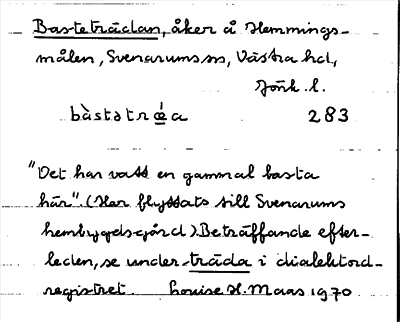 Basteträdan, åker å Hemmings-
målen, Svenarums sn, Västra hd,
Jönk. l.
bàstətrǿ́a 283
"Det har vatt en gammal basta
här". (Har flyttats till Svenarums
hembygdsgård). Beträffande efter-
leden, se under träda i dialektord-
registret. Louise H. Maas 1970